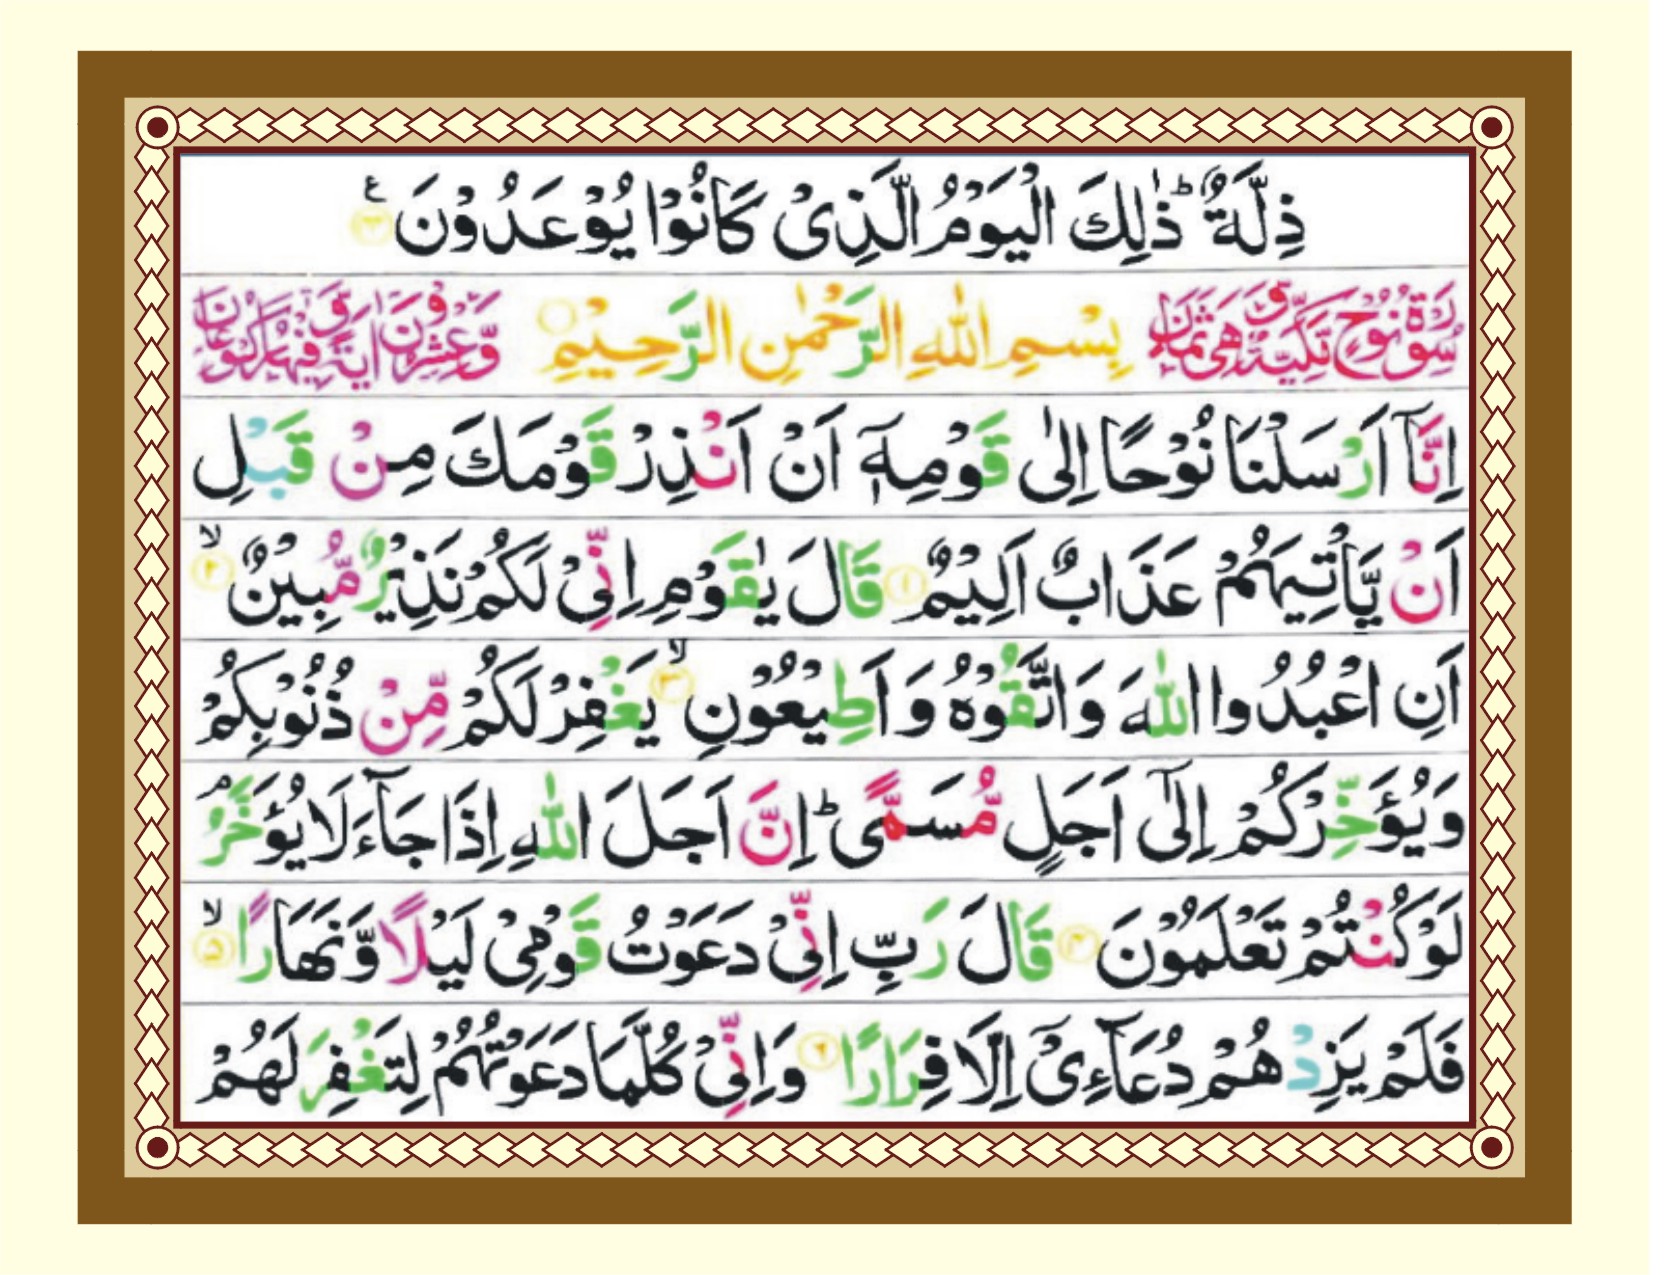 ذِلَّةٌ ؕ ذٰلِكَ الْيَوْمُ الَّذِىْ كَانُوْا يُوْعَدُوْنَ ع ۴۴
سُوْرَةُ نُوْحٍ مَّكِّيَّةٌ وَّهِىَ ثَمَانٍ بِسْمِ اللّٰهِ الرَّحْمٰنِ الرَّحِيْمِ وَّعِشْرُوْنَ اٰيَةً وَّفِيْهَا رُكُوْعَانِ
اِنَّاۤ اَرْسَلْنَا نُوْحًا اِلٰى قَوْمِهٖۤ اَنْ اَنْذِرْ قَوْمَكَ مِنْ قَبْلِ
اَنْ يَّاْتِيَهُمْ عَذَابٌ اَلِيْمٌ ۱ قَالَ يٰقَوْمِ اِنِّىْ لَكُمْ نَذِيْرٌ مُّبِيْنٌ ۙ ۲
اَنِ اعْبُدُوا اللّٰهَ وَاتَّقُوْهُ وَ اَطِيْعُوْنِ ۙ ۳ يَغْفِرْ لَكُمْ مِّنْ ذُنُوْبِكُمْ
وَيُؤَخِّرْكُمْ اِلٰٓى اَجَلٍ مُّسَمًّى ؕ اِنَّ اَجَلَ اللّٰهِ اِذَا جَآءَ لَا يُؤَخَّرُ ۘ
لَوْ كُنْتُمْ تَعْلَمُوْنَ ۴ قَالَ رَبِّ اِنِّىْ دَعَوْتُ قَوْمِىْ لَيْلًا وَّنَهَارًا ۙ ۵
فَلَمْ يَزِدْهُمْ دُعَآءِىْۤ اِلَّا فِرَارًا ۶ وَاِنِّىْ كُلَّمَا دَعَوْتُهُمْ لِتَغْفِرَ لَهُمْ